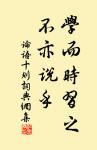 學而時習之
不亦說乎
論語十則詞典網集